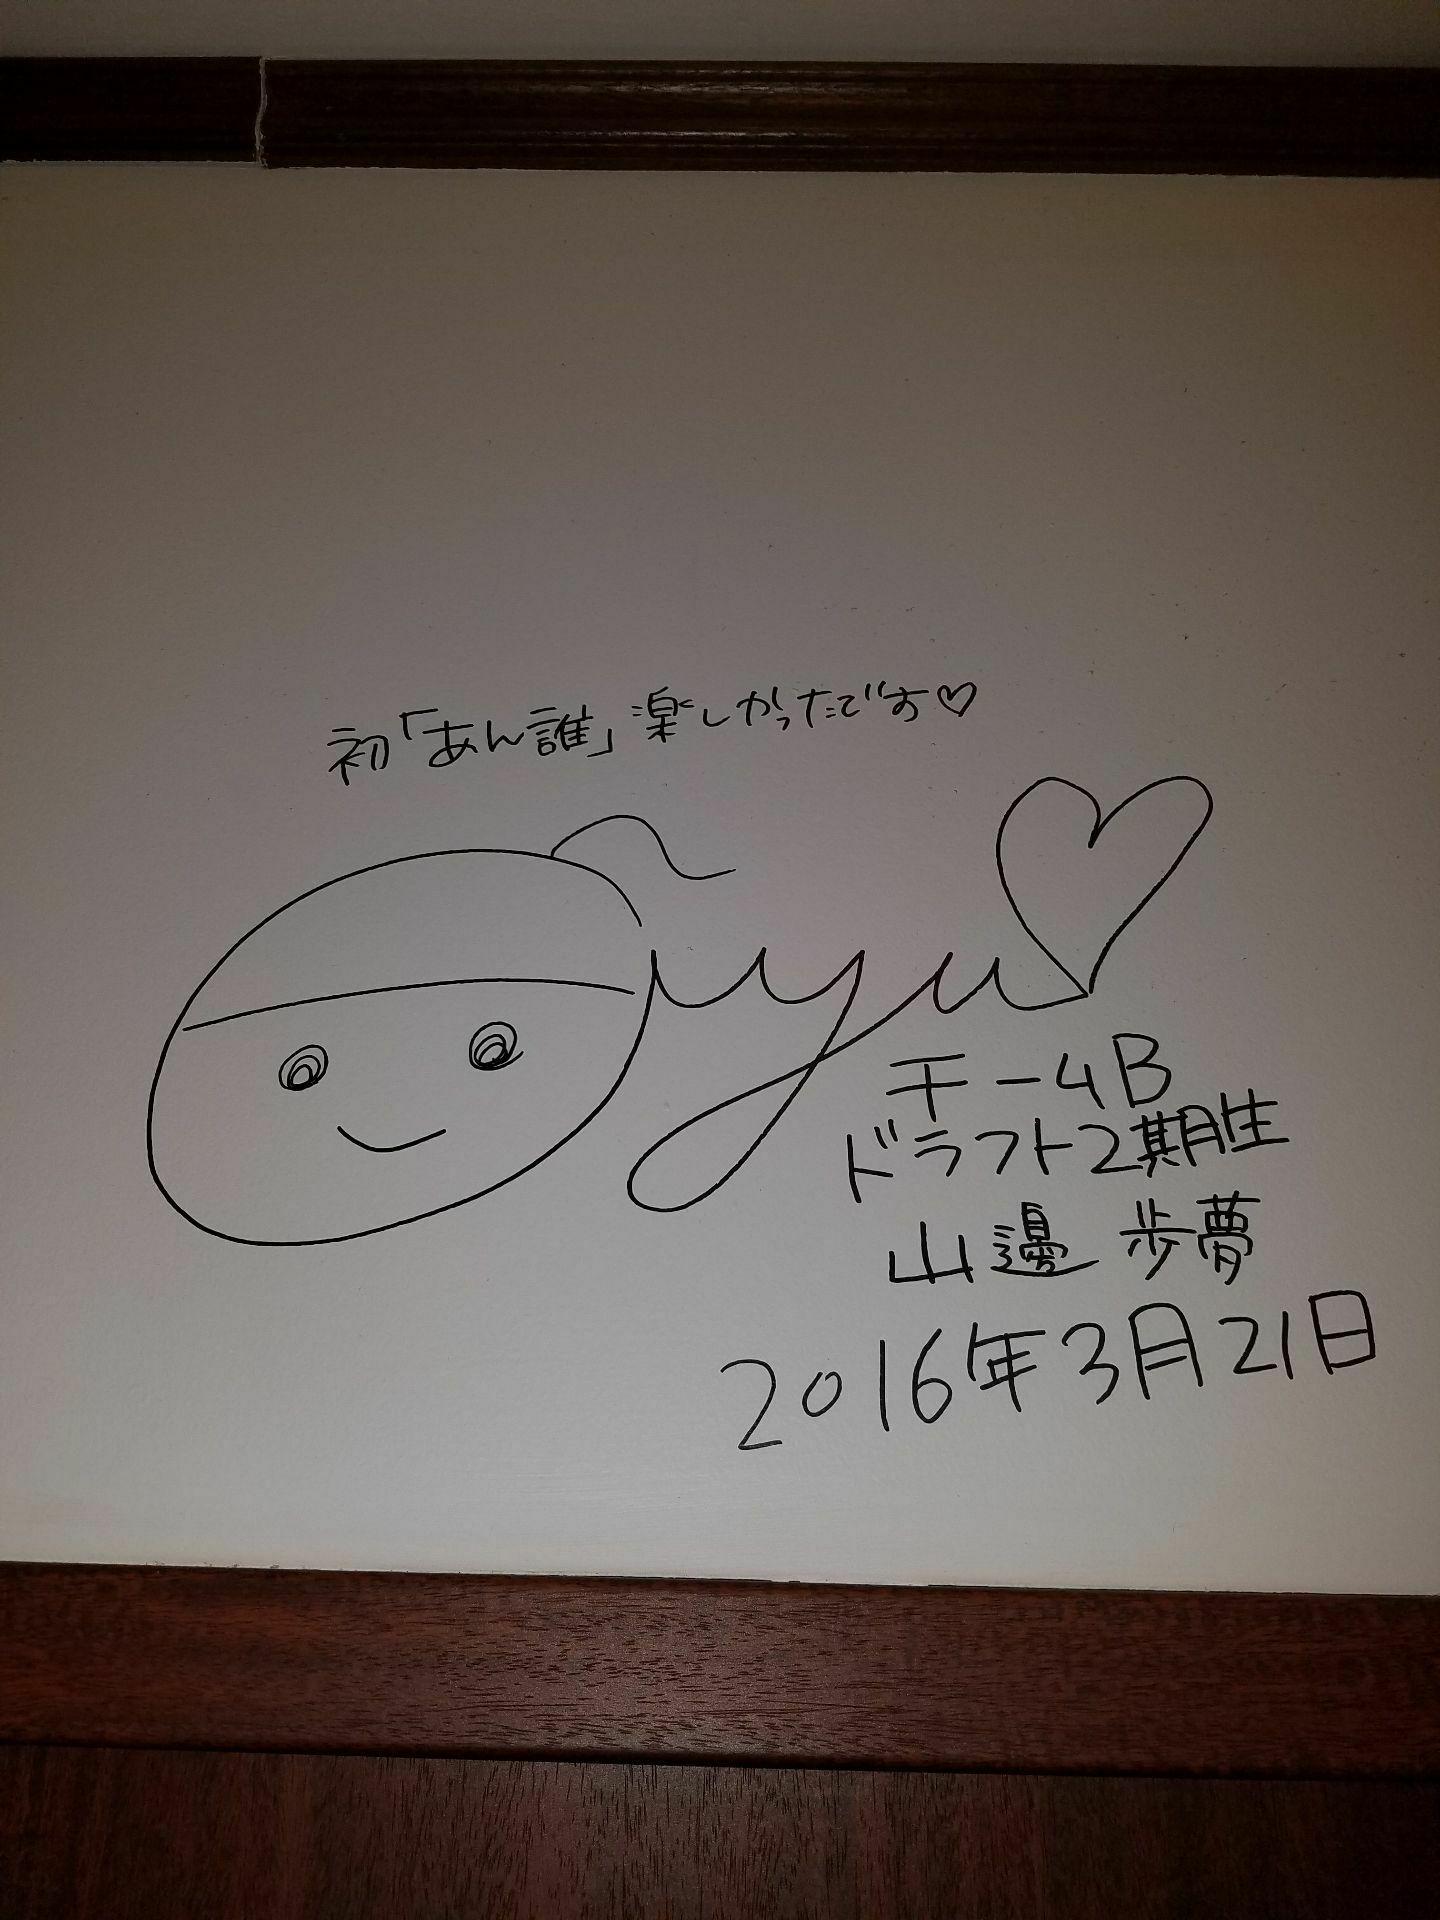 初「あん誰」楽しかったです♡
Ayu♡
チー4B
ドラフト2期生
山邊 歩夢
2016年3月21日